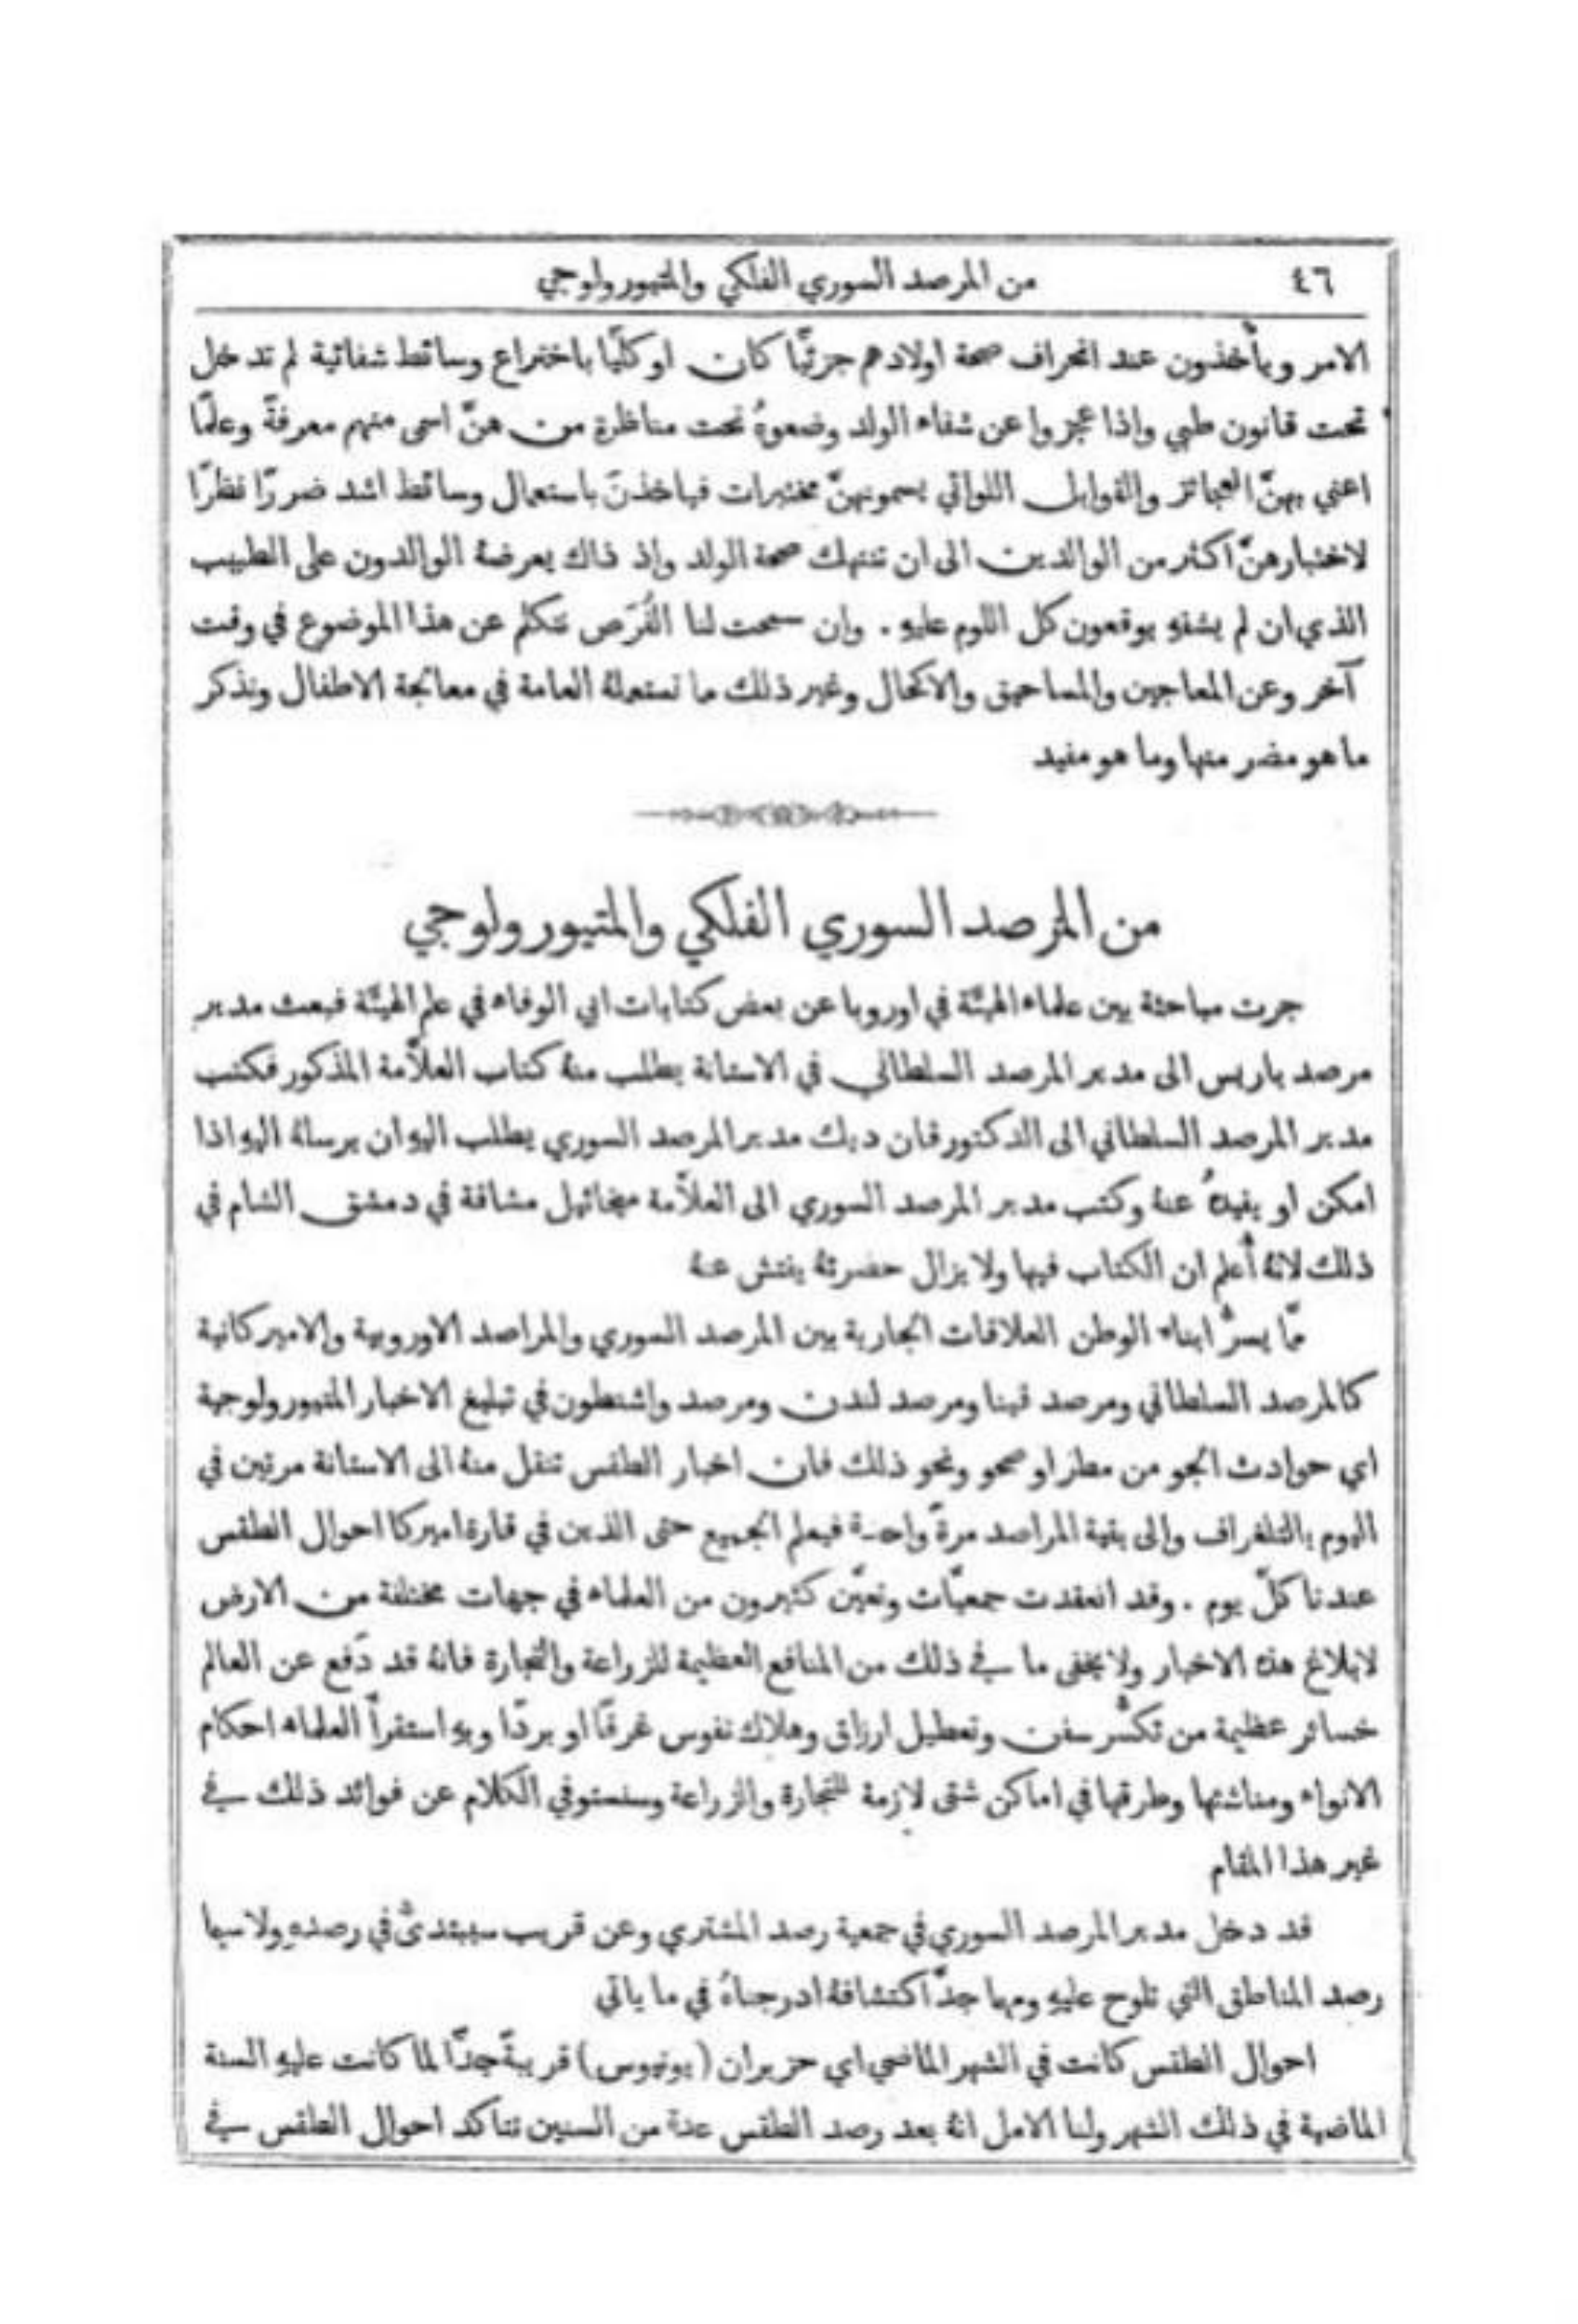 ٤٦
من المرصد السوري الفلكي والمتيورولوجي
الامر ويأخذون عند انحراف صحة اولادهم جزئيًّا كان او كلّيًا باختراع وسائط شفائية لم تدخل
تحت قانون طبي واذا عجزوا عن شفاء الولد وضعوهُ تحت مناظرة من هنَّ اسمى منهم معرفةً وعلمًا
اعني بهنَّ العجائز والقوابل اللواتي يسمونهنَّ مختبرات فياخذنَ باستعمال وسائط اشد ضررًا نظرًا
لاختبارهنَّ اكثر من الوالدين الى ان تنتهك صحة الولد واذ ذاك يعرضهُ الوالدون على الطبيب
الذي ان لم يشفهِ يوقعون كل اللوم عليهِ . وان سمحت لنا الفُرَص نتكلم عن هذا الموضوع في وقت
آخر وعن المعاجين والمساحيق والاكحال وغير ذلك ما تستعملهُ العامة في معالجة الاطفال ونذكر
ما هو مضر منها وما هو مفيد
من المرصد السوري الفلكي والمتيورولوجي
جرت مباحثة بين علماء الهيئة في اوروبا عن بعض كتابات ابي الوفاء في علم الهيئة فبعث مدير
مرصد باريس الى مدير المرصد السلطاني في الاستانة يطلب منهُ كتاب العلاَّمة المذكور فكتب
مدير المرصد السلطاني الى الدكتور فان ديك مدير المرصد السوري يطلب اليهِ ان يرسلهُ اليهِ اذا
امكن او يفيدهُ عنهُ وكتب مدير المرصد السوري الى العلاَّمة ميخائيل مشاقة في دمشق الشام في
ذلك لانهُ أُعلم ان الكتاب فيها ولا يزال حضرتهُ يفتش عنهُ
ممَّا يسرُّ ابناء الوطن العلاقات الجارية بين المرصد السوري والمراصد الاوروبية والاميركانية
كالمرصد السلطاني ومرصد ڤينا ومرصد لندن ومرصد واشنطون في تبليغ الاخبار المتيورولوجية
اي حوادث الجو من مطر او صحو ونحو ذلك فان اخبار الطقس تنقل منهُ الى الاستانة مرتين في
اليوم بالتلغراف والى بقية المراصد مرةً واحدة فيعلم الجميع حتى الذين في قارة اميركا احوال الطقس
عندنا كلّ يوم . وقد انعقدت جمعيَّات وتعيَّن كثيرون من العلماء في جهات مختلفة من الارض
لابلاغ هذه الاخبار ولا يخفى ما في ذلك من المنافع العظيمة للزراعة والتجارة فانهُ قد دَفع عن العالم
خسائر عظيمة من تكسُّر سفن وتعطيل ارزاق وهلاك نفوس غرقًا او بردًا وبهِ استقرأَ العلماء احكام
الانواء ومناشئها وطرقها في اماكن شتى لازمة للتجارة والزراعة وسنستوفي الكلام عن فوائد ذلك في
غير هذا المقام
قد دخل مدير المرصد السوري في جمعية رصد المشتري وعن قريب سيبتدئُ في رصدهِ ولا سيما
رصد المناطق التي تلوح عليهِ ومهما جدَّ اكتشافهُ ادرجناهُ في ما ياتي
احوال الطقس كانت في الشهر الماضي اي حزيران (يونيوس) قريبةً جدًّا لما كانت عليهِ السنة
الماضية في ذلك الشهر ولنا الامل انهُ بعد رصد الطقس عدة من السنين نتاكد احوال الطقس في